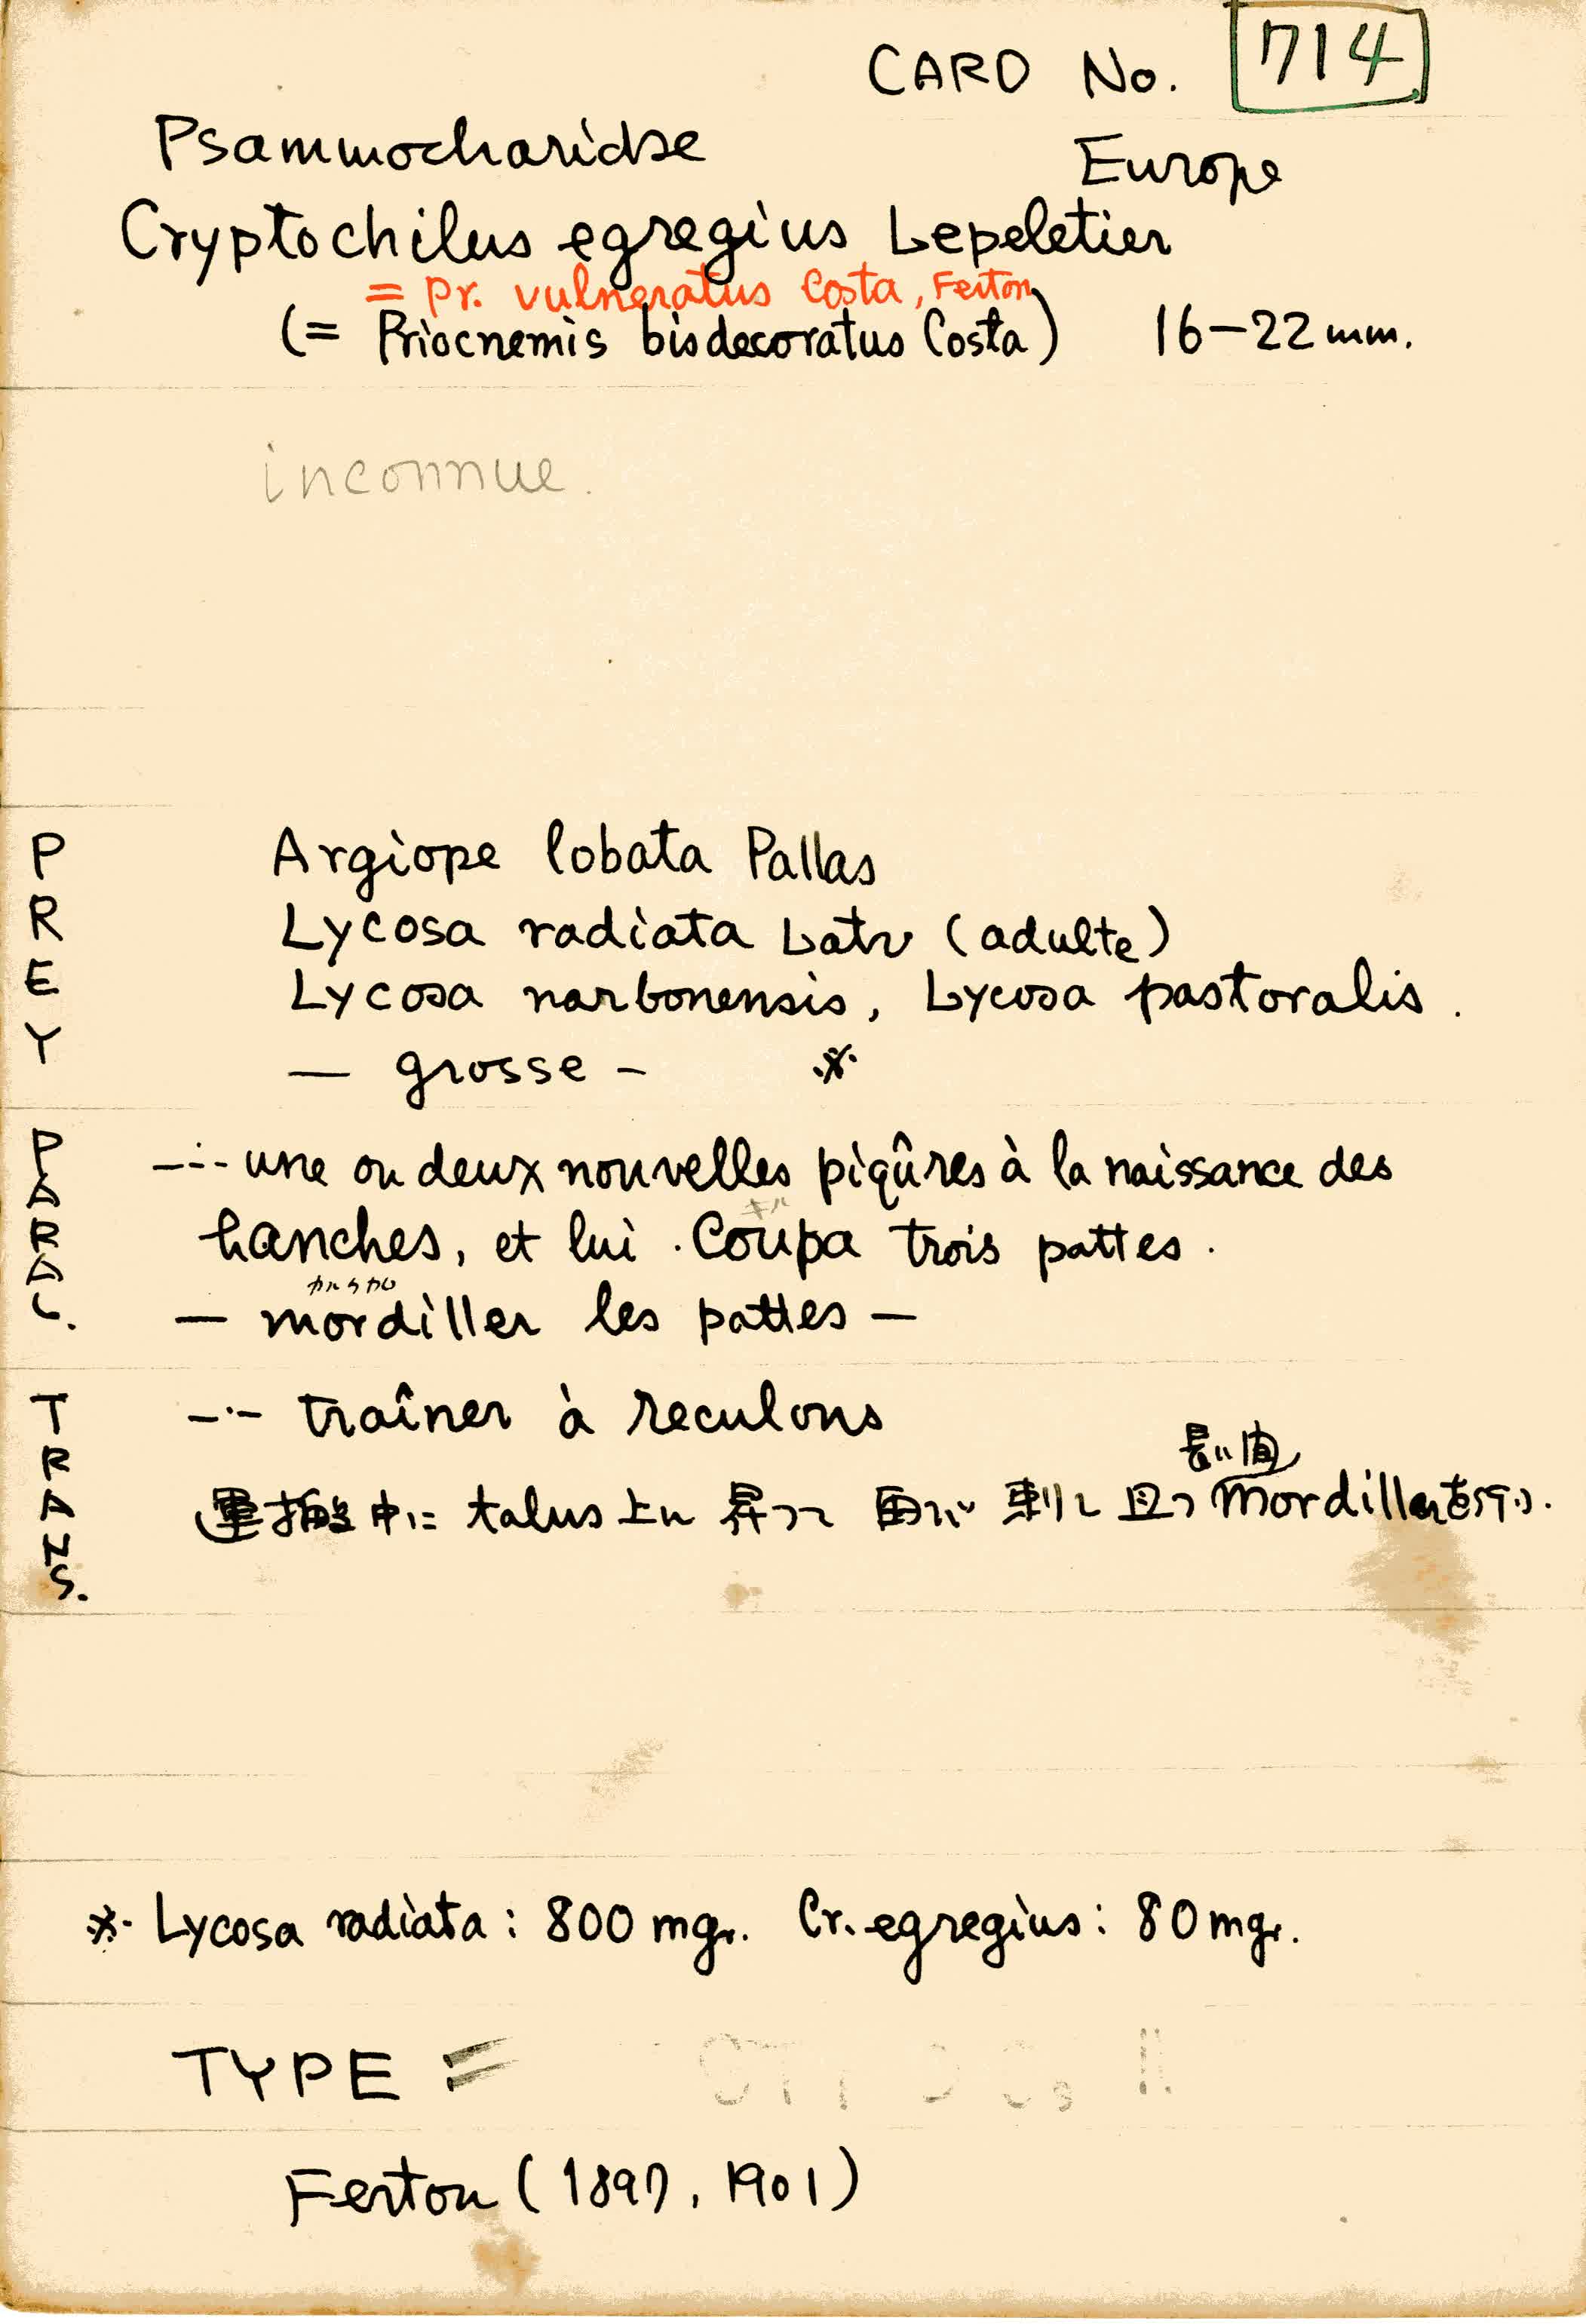 CARD No. 714
Psammocharidae Europe
Cryptochilus egregius Lepeletier
= Pr. vulneratus Costa, Ferton
(= Priocnemis bisdecoratus Costa) 16-22 mm.
inconnue.
PREY
Argiope lobata Pallas
Lycosa radiata Latr (adulte)
Lycosa narbonensis, Lycosa pastoralis.
— grosse - ※
PARAL.
-·- une ou deux nouvelles piqûres à la naissance des
hanches, et lui. Coupa trois pattes.
— mordiller les pattes —
TRANS.
-·- traîner à reculons
長い間
運搬中に talus 上に 昇って 再び 刺し 且つ mordillerを行う.
※ Lycosa radiata : 800 mgr. Cr. egregius : 80 mgr.
TYPE =
Ferton (1897, 1901)